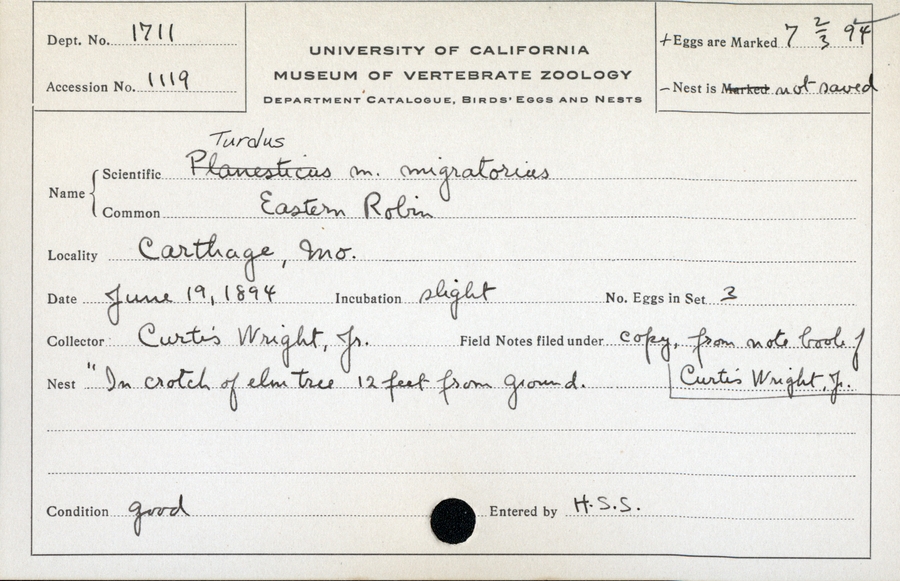 Dept. No. 1711
Accession No. 1119
UNIVERSITY OF CALIFORNIA
MUSEUM OF VERTEBRATE ZOOLOGY
DEPARTMENT CATALOGUE, BIRDS' EGGS AND NESTS
+Eggs are Marked 7 2/3 94
-Nest is Marked not saved
Turdus
Name Scientific Planesticus m. migratorius
Common Eastern Robin
Locality Carthage, Mo.
Date June 19, 1894 Incubation slight No. Eggs in Set 3
Collector Curtis Wright, Jr. Field Notes filed under copy, from note book of
Nest "In crotch of elm tree 12 feet from ground. Curtis Wright, Jr.
Condition good Entered by H.S.S.